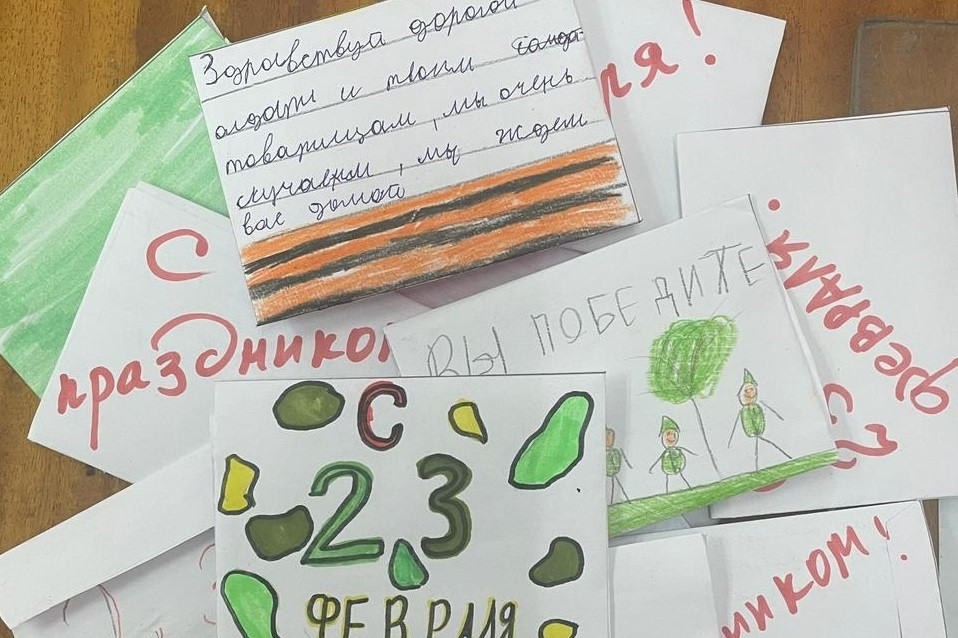 Здравствуй дорогой
солдат и твоим
товарищам, мы очень
скучаем, мы ждем
вас домой
ря!
С
праздником
ВЫ ПОБЕДИТЕ
С 23
ФЕВРАЛЯ.
С
23
ФЕВРАЛЯ
ником!